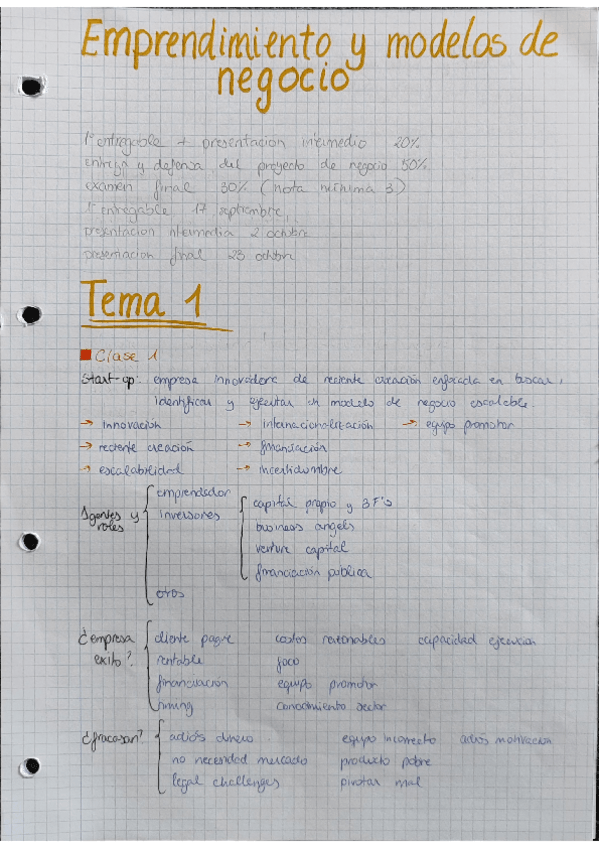 Emprendimiento y modelos de
negocio
1º entregable + presentacion intermedio 20%
entrega y defensa del proyecto de negocio 50%
examen final 30% (nota minima 3)
1º entregable 17 septiembre,
presentacion intermedia 2 octubre
presentacion final 23 octubre
Tema 1
Clase 1
Start-up: empresa innovadora de reciente creación enfocada en buscar,
identificar y ejecutar un modelo de negocio escalable.
→ innovación → internacionalización → equipo promotor
→ reciente creación → financiación
→ escalabilidad → incertidumbre
Agentes y roles { emprendedor
inversores { capital propio y 3 F's
business angels
venture capital
financiación pública
otros
¿empresa exito? { cliente pague costes razonables capacidad ejecucion
rentable foco
financiación equipo promotor
timing conocimiento sector
¿fracasan? { adiós dinero equipo incorrecto adiós motivacion
no necesidad mercado producto pobre
legal challenges pivotar mal